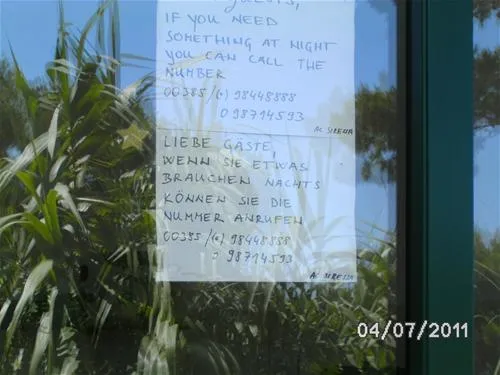 GUESTS,
IF YOU NEED
SOMETHING AT NIGHT
YOU CAN CALL THE
NUMBER
00385 /(0) 98448888
0 98714593
AC SIRENA
LIEBE GÄSTE,
WENN SIE ETWAS
BRAUCHEN NACHTS
KÖNNEN SIE DIE
NUMMER ANRUFEN
00385 /(0) 98448888
0 98714593
AC SIRENA
04/07/2011